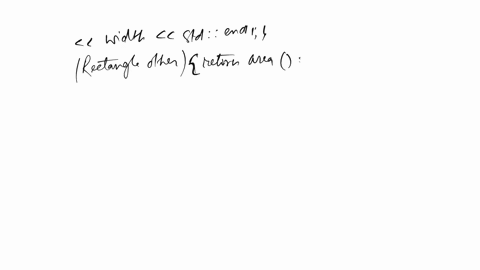 << width << std:: endl; }
(Rectangle other) { return area () :